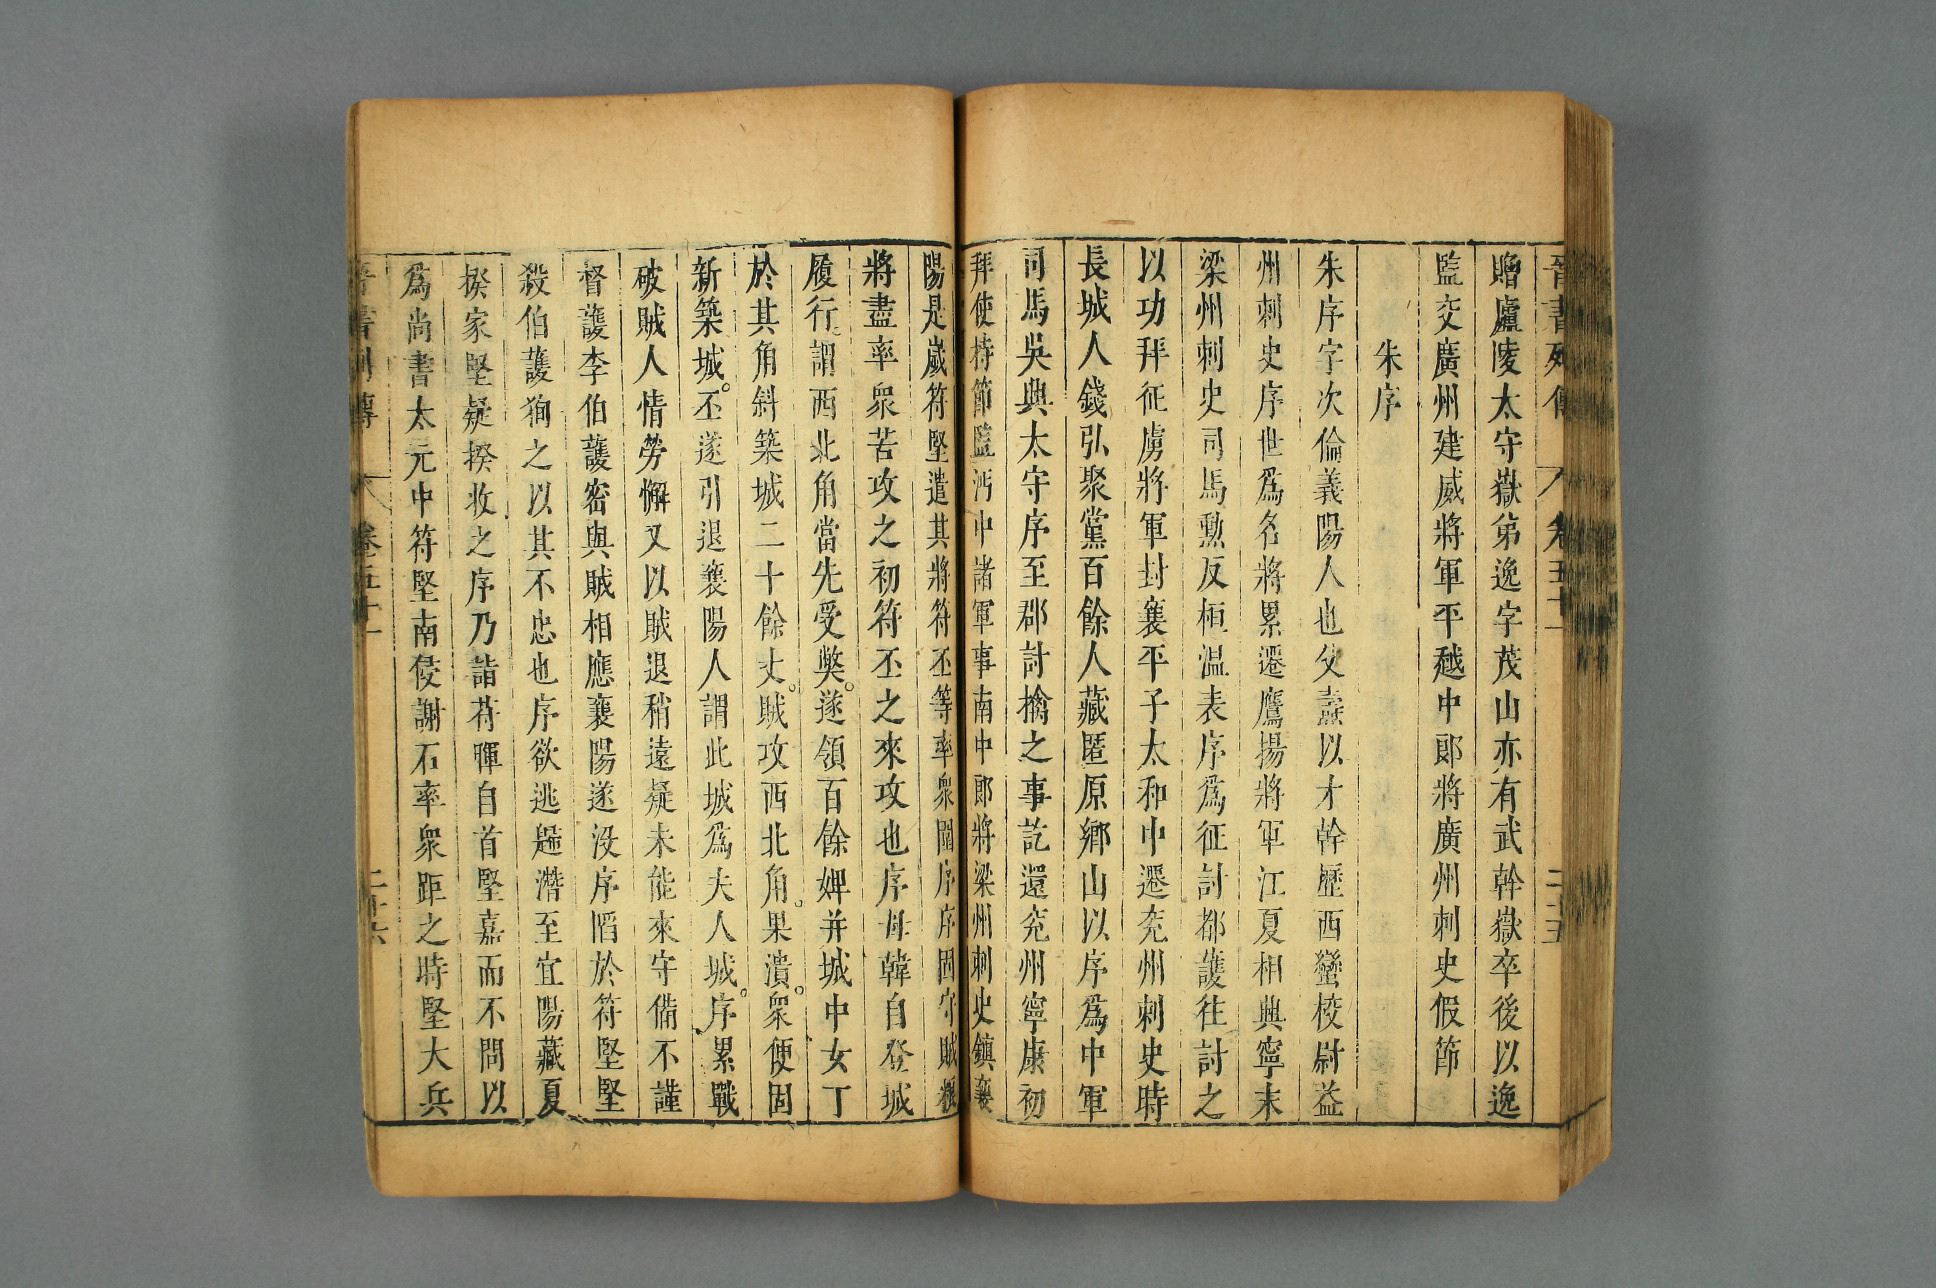 晉書列傳 卷五十一 二十五
贈廬陵太守嶽弟逸字茂山亦有武幹嶽卒後以逸
監交廣州建威將軍平越中郎將廣州刺史假節
朱序
朱序字次倫義陽人也父燾以才幹歷西蠻校尉益
州刺史序世爲名將累遷鷹揚將軍江夏相興寧末
梁州刺史司馬勲反桓温表序爲征討都護往討之
以功拜征虜將軍封襄平子太和中遷兖州刺史時
長城人錢弘聚黨百餘人藏匿原鄉山以序爲中軍
司馬吳興太守序至郡討擒之事訖還兖州寧康初
拜使持節監沔中諸軍事南中郎將梁州刺史鎮襄
陽是歲符堅遣其將符丕等率衆圍序序固守賊糧
將盡率衆苦攻之初符丕之來攻也序母韓自登城
履行謂西北角當先受獘。遂領百餘婢并城中女丁
於其角斜築城二十餘丈。賊攻西北角。果潰。衆便固
新築城。丕遂引退襄陽人謂此城爲夫人城。序累戰
破賊人情勞懈又以賊退稍遠疑未能來守備不謹
督護李伯護密與賊相應襄陽遂没序陷於符堅堅
殺伯護狥之以其不忠也序欲逃歸潛至宜陽藏夏
揆家堅疑揆收之序乃詣苻暉自首堅嘉而不問以
爲尚書太元中符堅南侵謝石率衆距之時堅大兵
晉書列傳 卷五十一 二十六